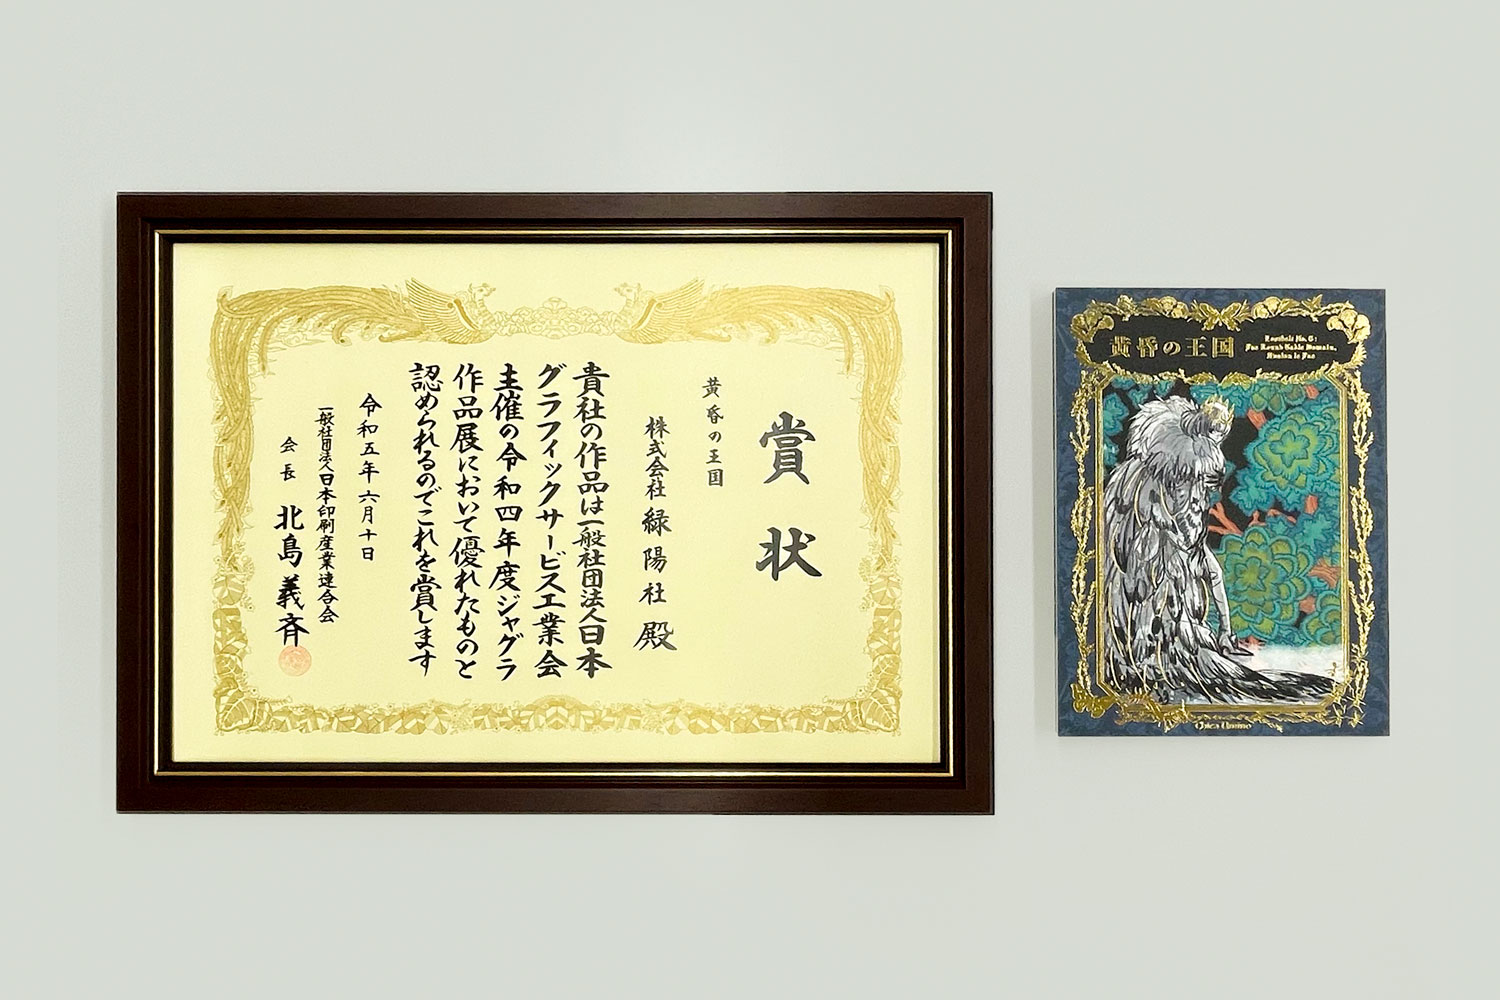 賞状
黄昏の王国
株式会社緑陽社殿
貴社の作品は一般社団法人日本
グラフィックサービス工業会
主催の令和四年度ジャグラ
作品展において優れたものと
認められるのでこれを賞します
令和五年六月十日
一般社団法人日本印刷産業連合会
会長 北島義斉
黄昏の王国
Lostbelt No.6:
Fae Round Table Domain,
Avalon le Fae